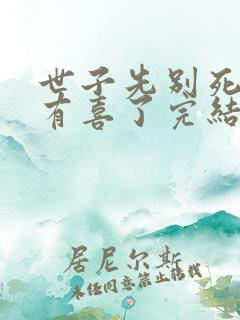 世子先别死
有喜了完结
居尼尔斯
未经同意禁止转载